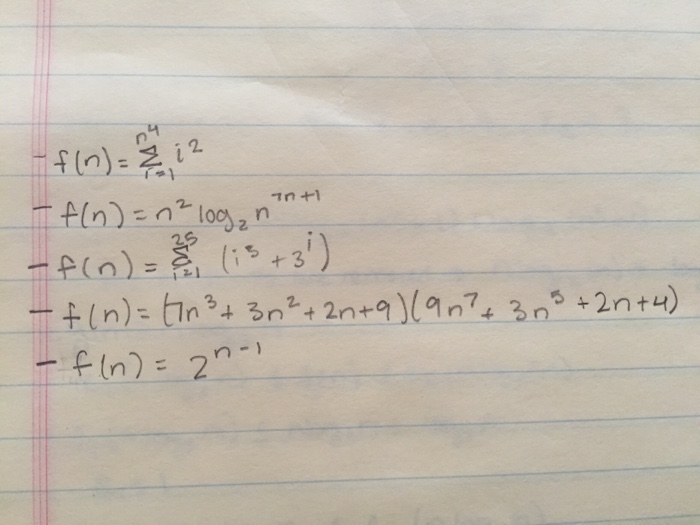 - f(n) = n⁴ Σ i=1 i²
- f(n) = n² log₂ n⁷ⁿ⁺¹
- f(n) = 25 Σ i=1 (i⁵ + 3ⁱ)
- f(n) = (7n³ + 3n² + 2n + 9)(9n⁷ + 3n⁵ + 2n + 4)
- f(n) = 2ⁿ⁻¹